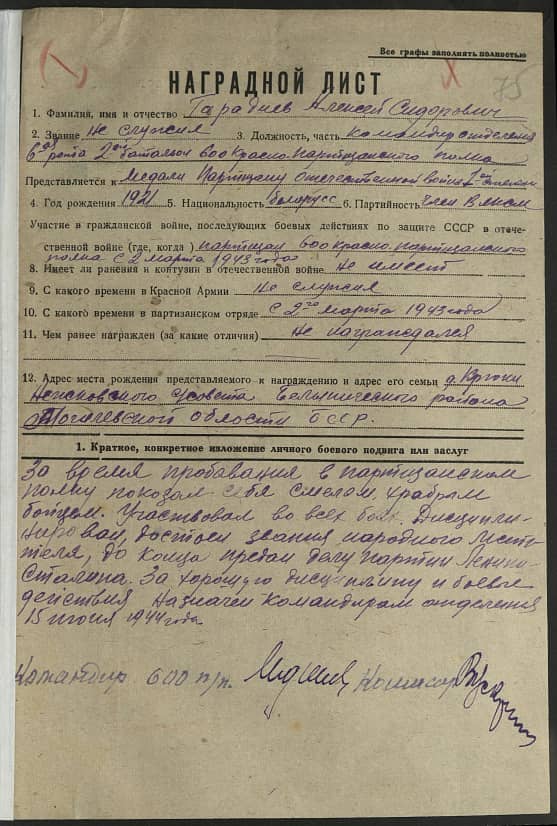 Все графы заполнять полностью
75
НАГРАДНОЙ ЛИСТ
1. Фамилия, имя и отчество Гарадиев Алексей Сидорович
2. Звание не служил 3. Должность, часть командир отделения
6ая рота 2ой батальон 600 Красно-партизанского полка
Представляется к Медали Партизану отечественной войны 2ой степени
4. Год рождения 1921 5. Национальность белорусс 6. Партийность член ВЛКСМ
Участие в гражданской войне, последующих боевых действиях по защите СССР в отече-
ственной войне (где, когда) партизан 600 Красно-партизанского
полка с 2 марта 1943 года
8. Имеет ли ранения и контузии в отечественной войне Не имеет
9. С какого времени в Красной Армии Не служил
10. С какого времени в партизанском отряде с 2го марта 1943 года
11. Чем ранее награжден (за какие отличия) Не награждался
12. Адрес места рождения представляемого к награждению и адрес его семьи д.
с/совета Белыничского района
Могилевской области БССР.
1. Краткое, конкретное изложение личного боевого подвига или заслуг
За время пробавания в партизанском
полку показал себя смелым, храбрым
бойцом. Участвовал во всех боях. Дисципли-
нирован, достоен звания народного мсти-
теля, до конца предан делу партии Ленина-
Сталина. За хорошую дисциплину и боевые
действия назначен командирам отделения
15 июня 1944 года
Командир 600 п/п. Комиссар